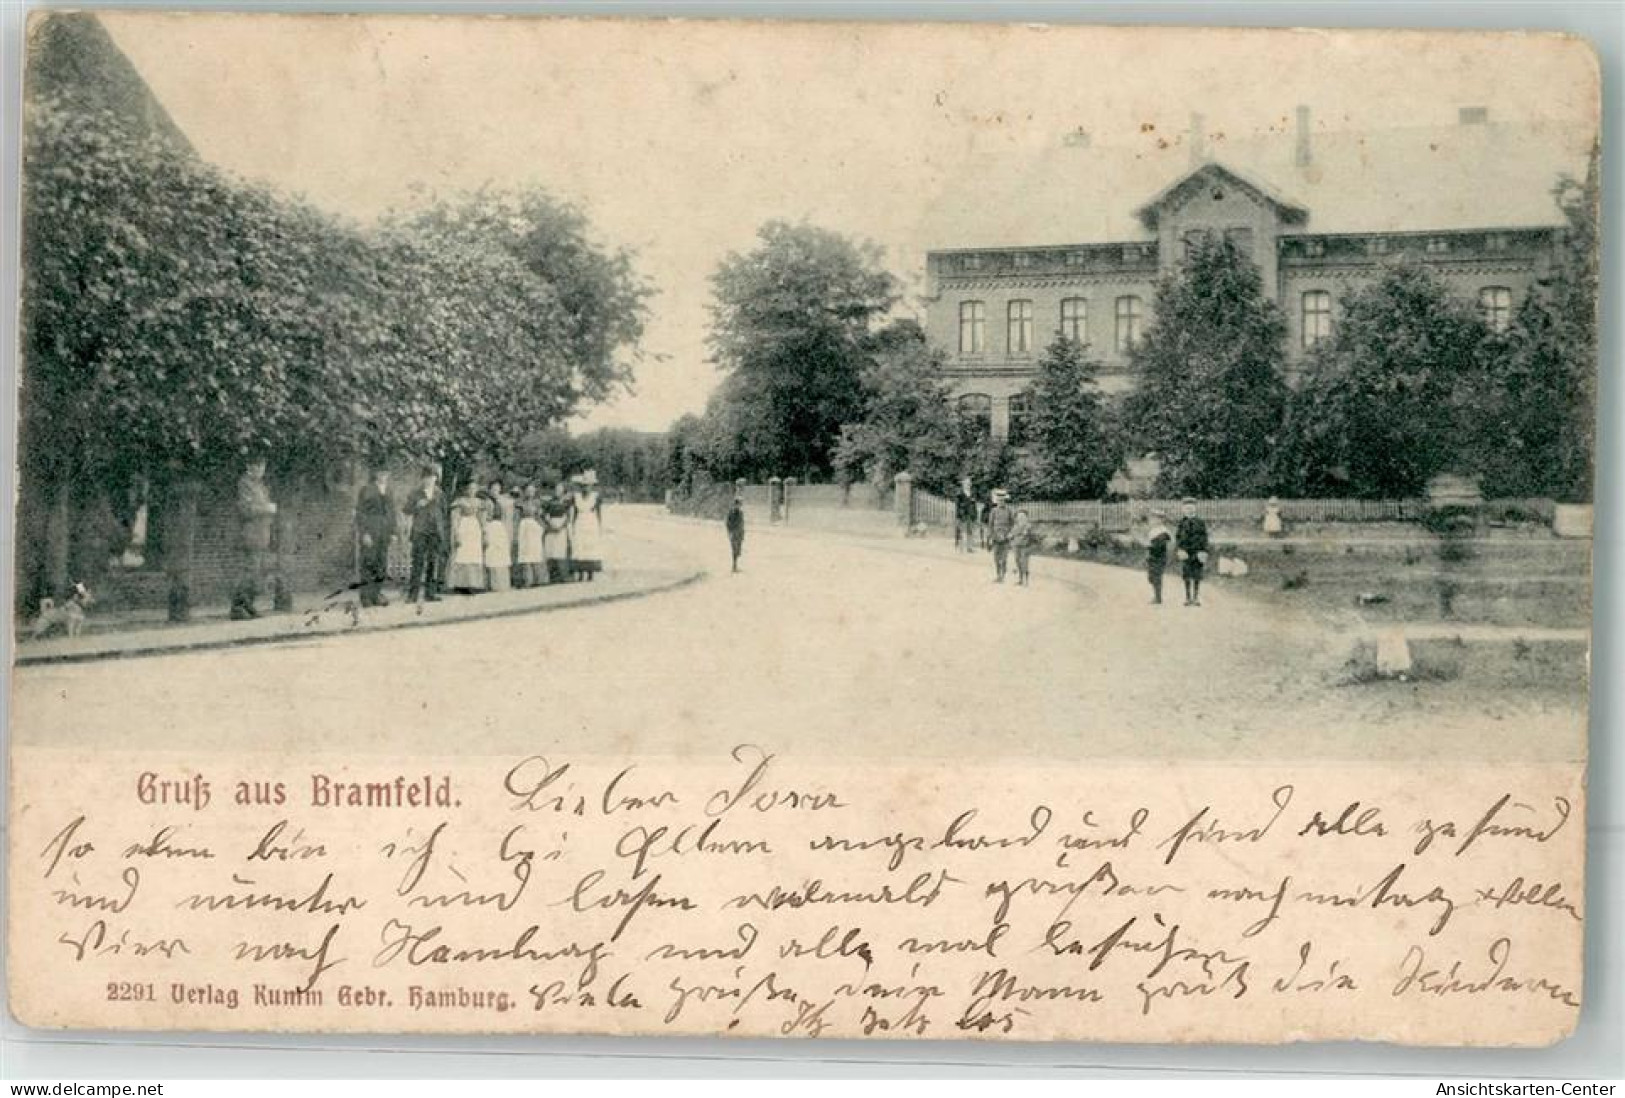 Gruß aus Bramfeld. Lieber Dora
so eben bin ich bei Eltern angekomd und sind alle gesund
und munter und lasen vielemals grüßen nach mitag wollen
Wier nach Hamburg und alle mal besuchen
2291 Verlag Kumm Gebr. Hamburg. Viele grüße dein Mann grüß die Kindern
www.delcampe.net
Ansichtskarten-Center